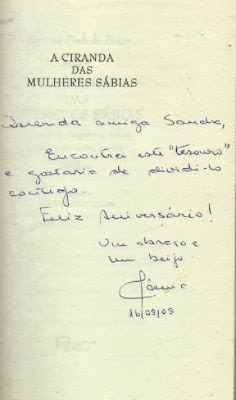 A CIRANDA
DAS
MULHERES SÁBIAS
Querida amiga Sandra,
Encontrei este "tesouro"
e gostaria de dividi-lo
contigo.
Feliz Aniversário!
Um abraço e
um beijo
16/09/09